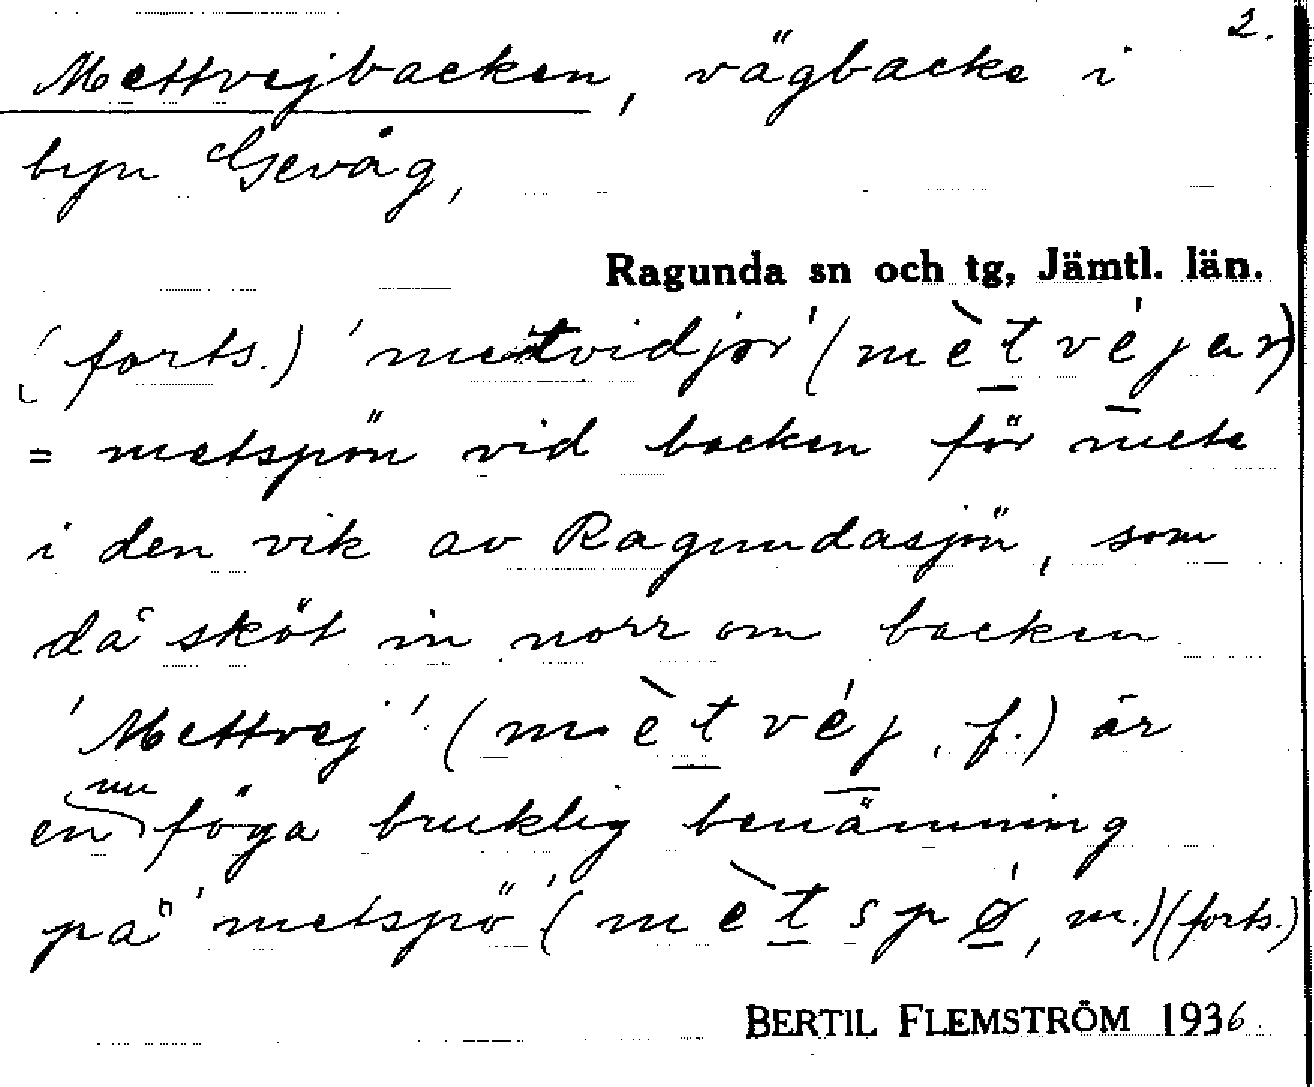 2.
Mettvejbacken, vägbacke i
byn Gevåg,
Ragunda sn och tg, Jämtl. län.
(forts.) 'metvidjor' (mètvéjar)
= metspön vid backen för mete
i den vik av Ragundasjön, som
då sköt in norr om backen
'Mettvej' (mètvéj, f.) är
en nu föga bruklig benämning
på 'metspö' (mètspǿ, m.) (forts.)
BERTIL FLEMSTRÖM 1936.